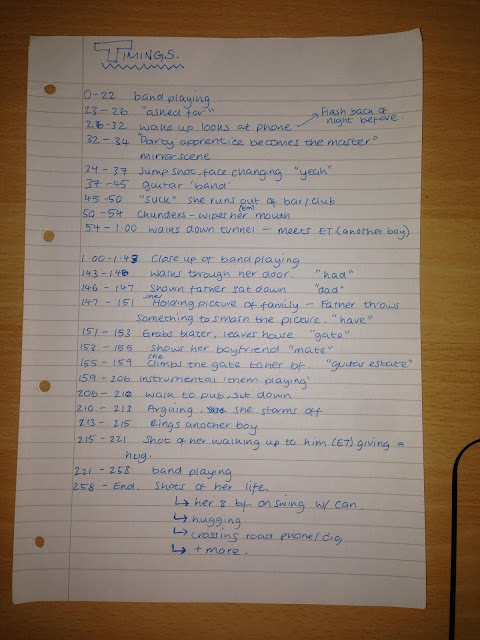 TIMINGS.
0-22 band playing
23-26 "asked for"
Flash back of
26-32 wake up looks at phone → night before.
32-34 "Party apprentice becomes the master"
mirror scene
34-37 Jump shot, face changing "yeah"
37-45 guitar 'band'
45-50 "suck" she runs out of bar/club
50-54 Chunders - wipes her mouth
54-1.00 walks down tunnel - meets ET (another boy)
1.00-1.43 Close up of band playing
143-146 walks through her door. "had"
146-147 Shown father sat down "dad"
147-151 she Holding picture of family - Father throws
something to smash the picture. "have"
151-153 Grabs blazer, leaves house "gate"
153-155 Shows her boyfriend "mate"
155-159 she Climbs the gate to her bf. "guitar estate"
159-206 instrumental 'them playing'
206-210 walk to pub, sit down
210-213 Arguing. she storms off
213-215 Rings another boy
215-221 Shot of her walking up to him (ET) giving a
hug.
221-258 band playing
258-End. Shots of her life.
↳ her & bf on swing w/ can.
↳ hugging
↳ crossing road phone/cig
↳ + more.